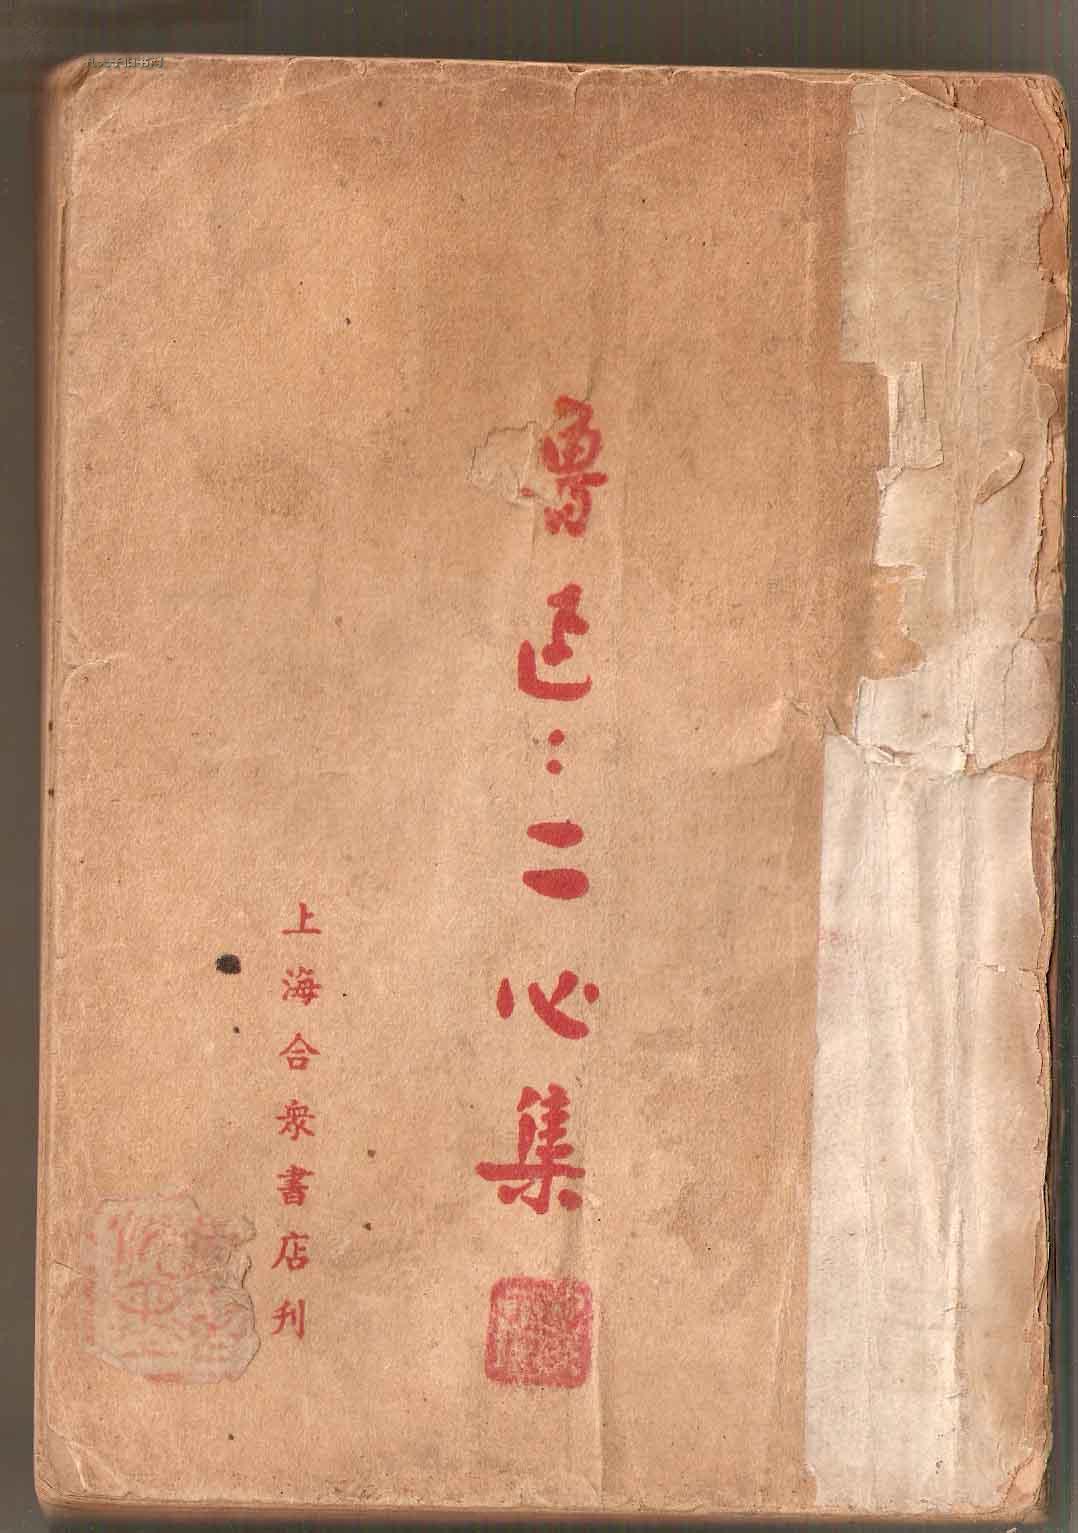 魯迅：二心集
上海合衆書店刊